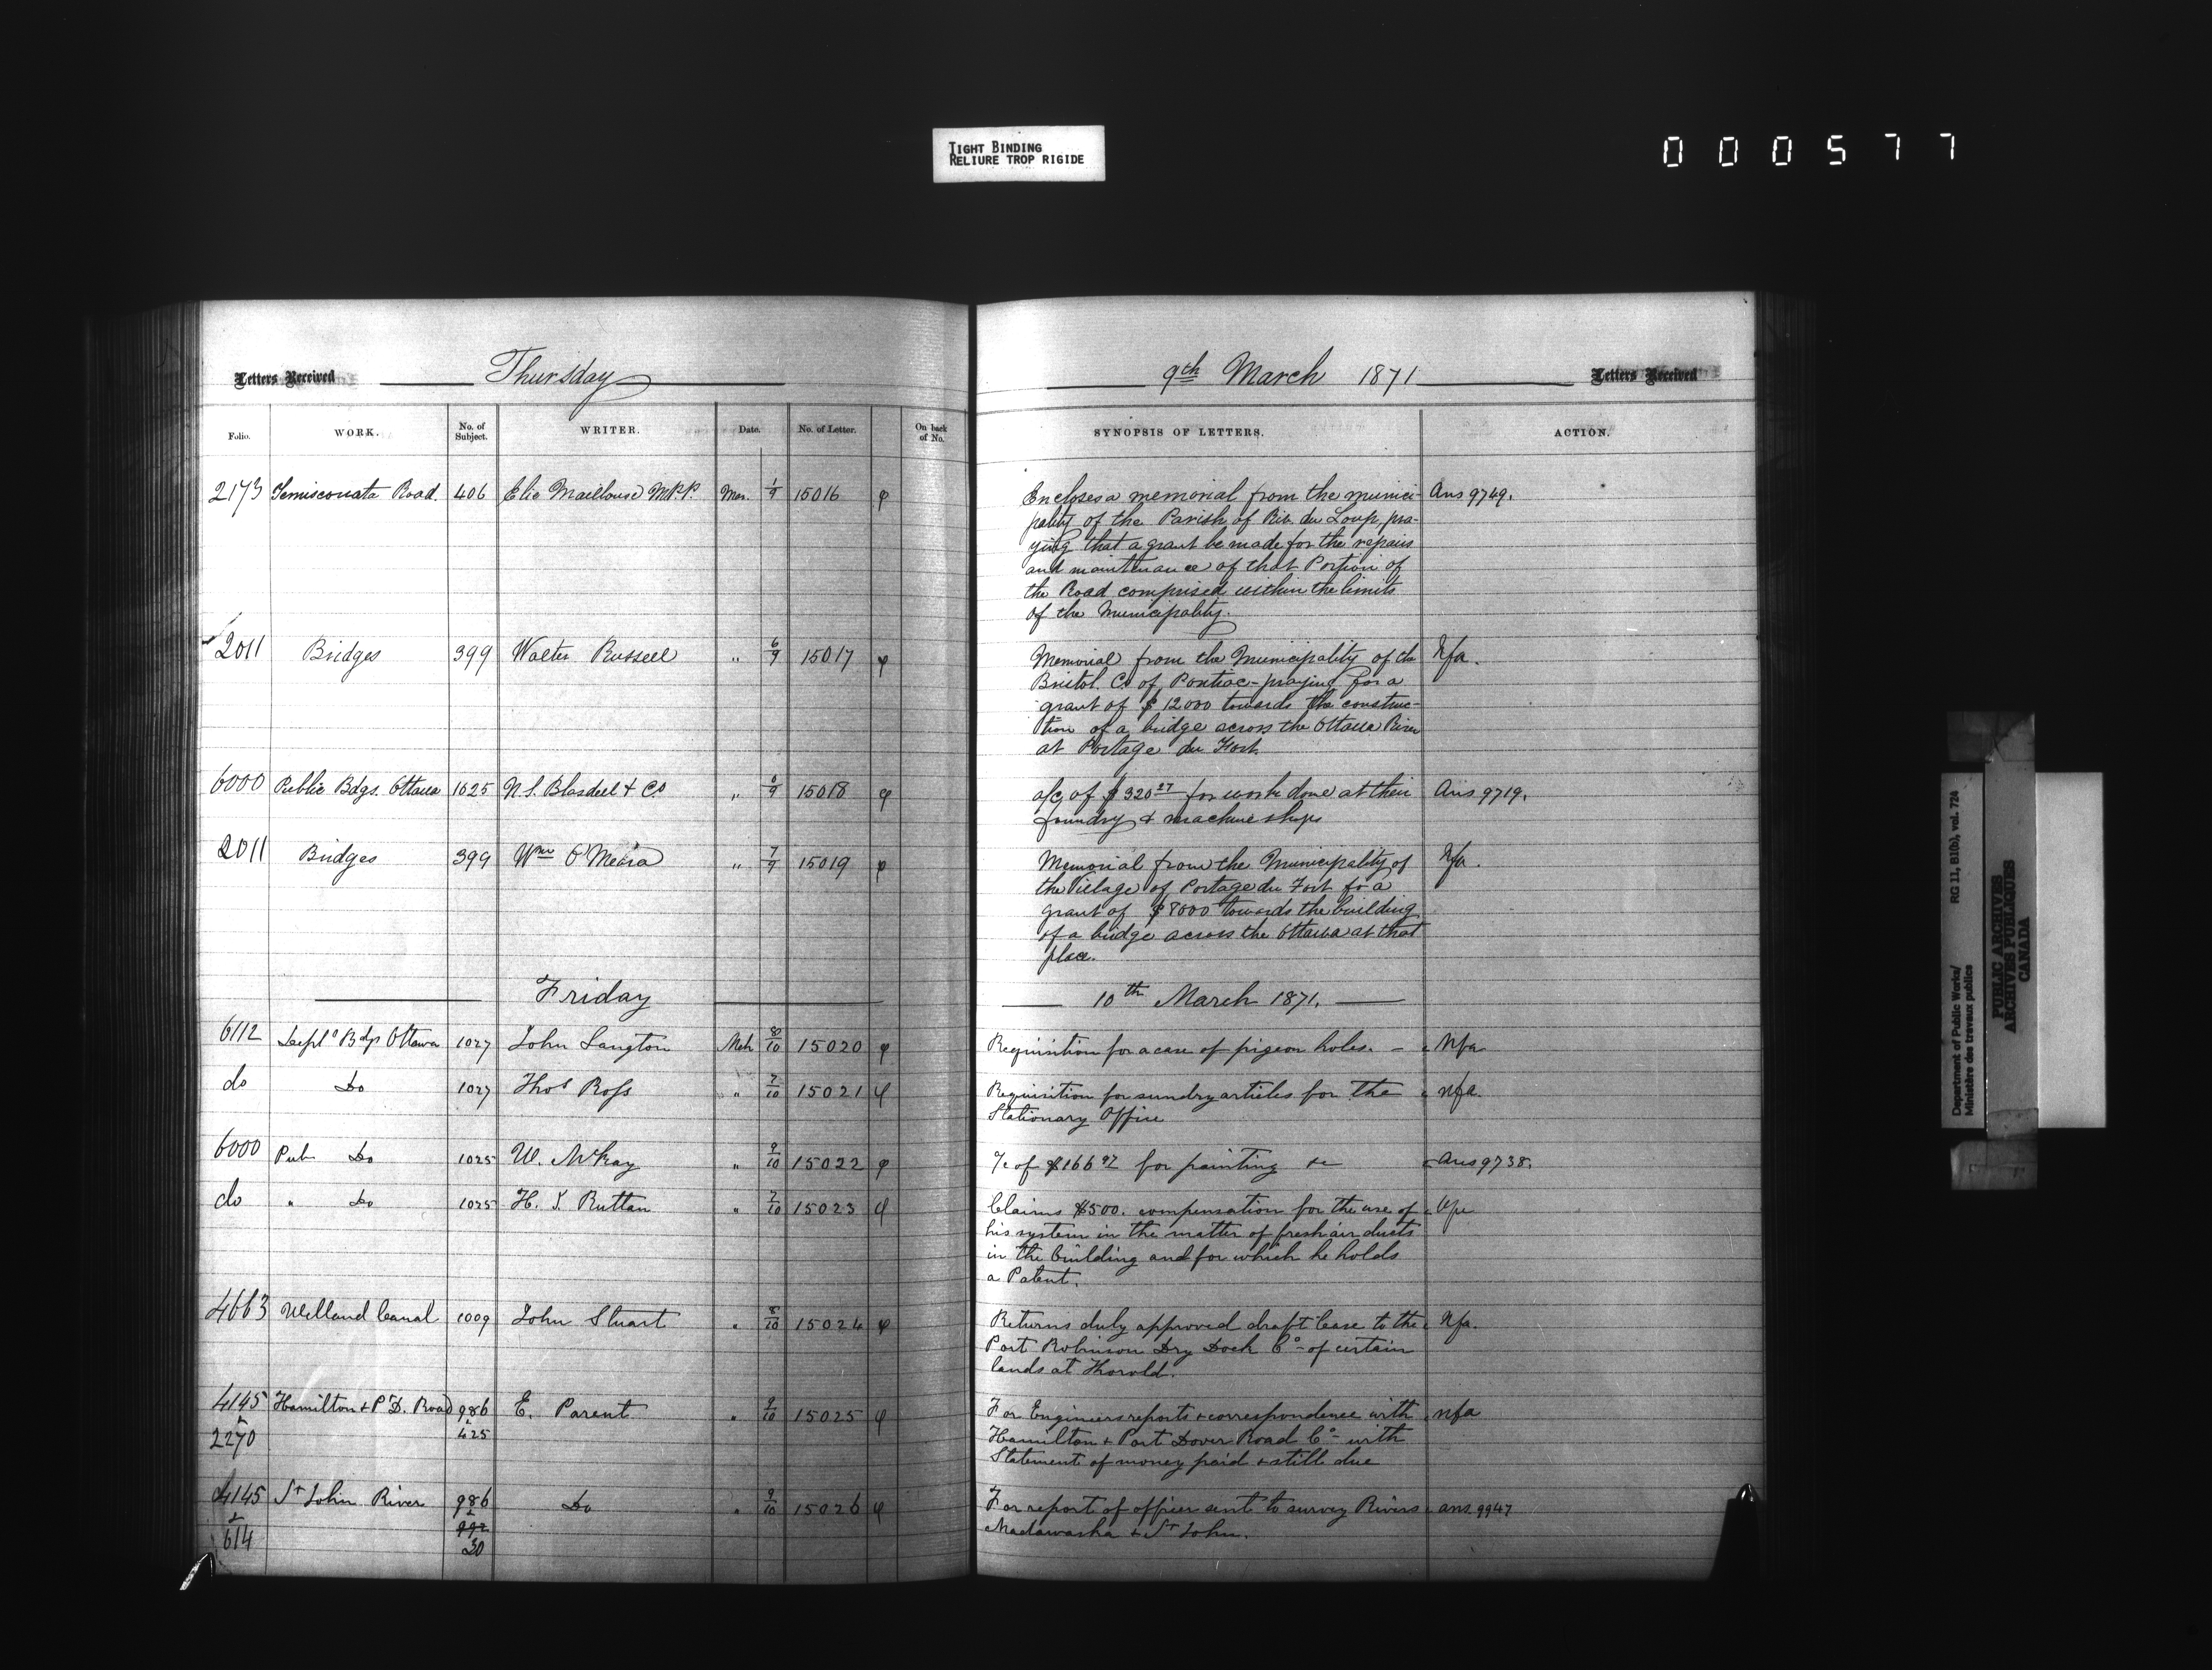 TIGHT BINDING
RELIURE TROP RIGIDE
000577
Letters Received Thursday
9th March 1871 Letters Received
Folio. WORK. No. of Subject. WRITER. Date. No. of Letter. On back of No.
SYNOPSIS OF LETTERS. ACTION.
2173 Temiscouata Road. 406 Elie Mailloux M.P.P. Mar. 1/9 15016 φ
Encloses a memorial from the munici- Ans 9749.
pality of the Parish of Riv. du Loup, pra-
ying that a grant be made for the repairs
and maintenance of that Portion of
the Road comprised within the limits
of the Municipality.
2011 Bridges 399 Walter Russell " 6/9 15017 φ
Memorial from the Municipality of the Nfa.
Bristol. Co of Pontiac - praying for a
grant of $12000 towards the construc-
tion of a bridge across the Ottawa River
at Portage du Fort.
6000 Public Bdgs. Ottawa 1025 N.S. Blasdell & Co 15018 φ
a/c of $320 27 for work done at their Ans 9719.
foundry & machine shops
2011 Bridges 399 Wm O'Meara " 7/9 15019 φ
Memorial from the Municipality of Nfa.
the Village of Portage du Fort for a
grant of $8000 towards the building
of a bridge across the Ottawa at that
place.
Friday
10th March 1871.
6112 Deptl Bdgs Ottawa 1027 John Langton Mch 8/10 15020 φ
Requisition for a case of pigeon holes. - Nfa
do Do 1027 Thos Ross " 7/10 15021 φ
Requisition for sundry articles for the nfa.
Stationary Office
6000 Pub Do 1025 W. McKay " 9/10 15022 φ
a/c of $166 92 for painting &c Ans 9738.
do " Do 1025 H. J. Ruttan " 7/10 15023 φ
Claims $500. compensation for the use of
his system in the matter of fresh air ducts
in the building and for which he holds
a Patent.
4663 Welland Canal 1009 John Stuart " 8/10 15024 φ
Returns duly approved draft lease to the Nfa.
Port Robinson Dry Dock Co - of certain
lands at Thorold.
4145 Hamilton & P. D. Road 986 E. Parent " 9/10 15025 φ
& & 
2270 425
For Engineers reports & correspondence with nfa
Hamilton & Port Dover Road Co - with
Statement of money paid & still due
4145 St John River 986 Do " 9/10 15026 φ
& &
614 992
30
For report of officer sent to survey Rivers ans. 9947
Madawaska & St John.
Department of Public Works/
Ministère des travaux publics
RG 11, B1(b), vol. 724
PUBLIC ARCHIVES
ARCHIVES PUBLIQUES
CANADA